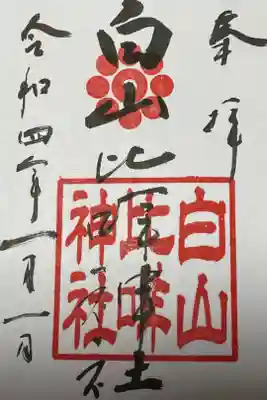 奉拝
白山比咩神社
白山
比咩
神社
令和四年一月一日